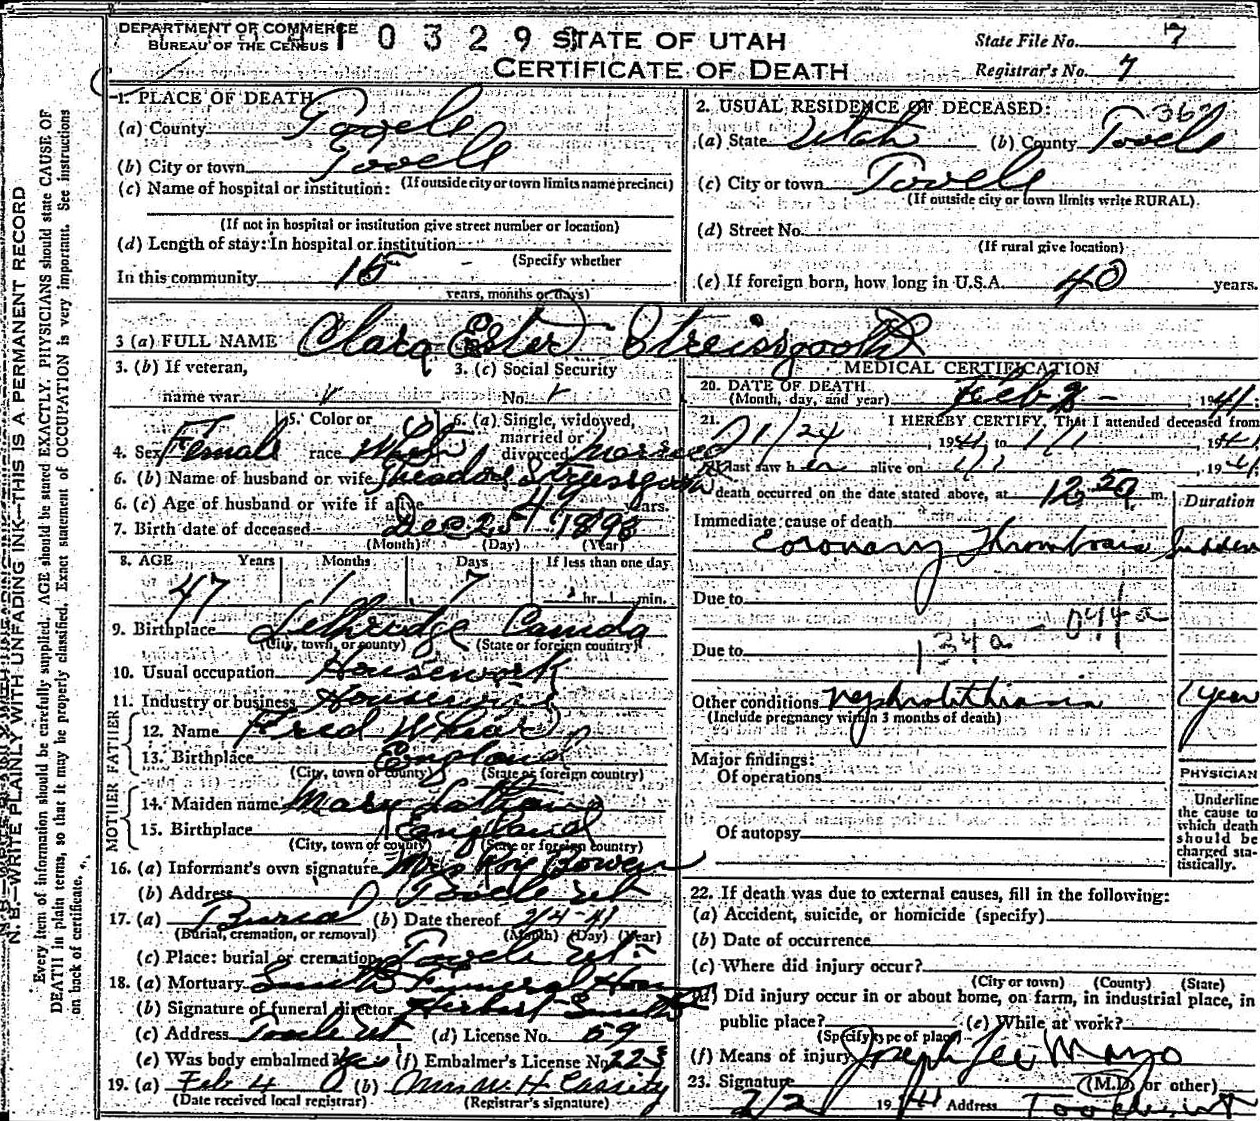 DEPARTMENT OF COMMERCE
BUREAU OF THE CENSUS
10329
STATE OF UTAH
CERTIFICATE OF DEATH
State File No. 7
Registrar's No. 7
N. B.—WRITE PLAINLY WITH UNFADING INK—THIS IS A PERMANENT RECORD
Every item of information should be carefully supplied. AGE should be stated EXACTLY. PHYSICIANS should state CAUSE OF
DEATH in plain terms, so that it may be properly classified. Exact statement of OCCUPATION is very important. See instructions
on back of certificate.
1. PLACE OF DEATH
(a) County Tooele
(b) City or town Tooele
(If outside city or town limits name precinct)
(c) Name of hospital or institution:
(If not in hospital or institution give street number or location)
(d) Length of stay: In hospital or institution
(Specify whether
In this community 15
years, months or days)
2. USUAL RESIDENCE OF DECEASED:
(a) State Utah (b) County Tooele
(c) City or town Tooele
(If outside city or town limits write RURAL)
(d) Street No.
(If rural give location)
(e) If foreign born, how long in U.S.A. 40 years.
3 (a) FULL NAME Clara Ester Streissgooth
3. (b) If veteran,
name war
3. (c) Social Security
No.
4. Sex Female
5. Color or
race White
6. (a) Single, widowed,
married or
divorced Married
6. (b) Name of husband or wife Theadore
6. (c) Age of husband or wife if alive years.
7. Birth date of deceased Dec 25 1893
(Month) (Day) (Year)
8. AGE Years Months Days If less than one day
47 1 7 hr. min.
9. Birthplace Lethridge Canada
(City, town, or county) (State or foreign country)
10. Usual occupation Housework
11. Industry or business Housewife
FATHER
12. Name Fred
13. Birthplace England
(City, town or county) (State or foreign country)
MOTHER
14. Maiden name Mary
15. Birthplace England
(City, town or county) (State or foreign country)
16. (a) Informant's own signature Mrs Roy Bowen
(b) Address Tooele Ut
17. (a) Burial (b) Date thereof 2/4-41
(Burial, cremation, or removal) (Month) (Day) (Year)
(c) Place: burial or cremation Tooele Ut.
18. (a) Mortuary Smith Funeral Home
(b) Signature of funeral director Herbert Smith
(c) Address Tooele Ut (d) License No. 59
(e) Was body embalmed? Yes (f) Embalmer's License No. 223
19. (a) Feb 4 (b) H Cassity
(Date received local registrar) (Registrar's signature)
MEDICAL CERTIFICATION
20. DATE OF DEATH
(Month, day, and year) Feb 1941.
21. I HEREBY CERTIFY, That I attended deceased from
1/24 1941 to 1/1 1941
I last saw her alive on 1/1, 1941.
death occurred on the date stated above, at m.
Duration
Immediate cause of death
Coronary Thrombosis Sudden
Due to
134a - 044a
Due to
Other conditions Nephrolithiasis 1 year
(Include pregnancy within 3 months of death)
Major findings:
Of operations
Of autopsy
PHYSICIAN
Underline
the cause to
which death
should be
charged sta-
tistically.
22. If death was due to external causes, fill in the following:
(a) Accident, suicide, or homicide (specify)
(b) Date of occurrence
(c) Where did injury occur?
(City or town) (County) (State)
(d) Did injury occur in or about home, on farm, in industrial place, in
public place? (e) While at work?
(Specify type of place)
(f) Means of injury
23. Signature Joseph Lee Mayo (M.D. or other)
2/2 1941 Address Tooele, Utah